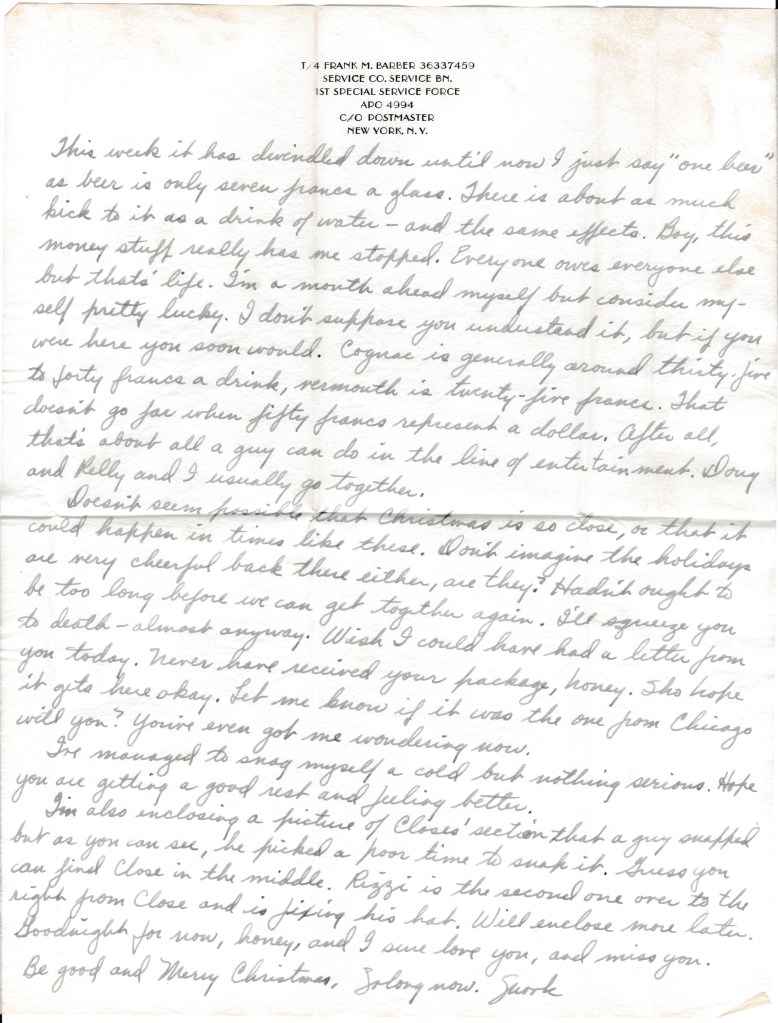 T/4 FRANK M. BARBER 36337459
SERVICE CO. SERVICE BN.
1ST SPECIAL SERVICE FORCE
APO 4994
C/O POSTMASTER
NEW YORK, N. Y.
This week it has dwindled down until now I just say "one beer"
as beer is only seven francs a glass. There is about as much
kick to it as a drink of water – and the same effects. Boy, this
money stuff really has me stopped. Everyone owes everyone else
but that's life. I'm a month ahead myself but consider my-
self pretty lucky. I don't suppose you understand it, but if you
were here you soon would. Cognac is generally around thirty-five
to forty francs a drink, vermouth is twenty-five francs. That
doesn't go far when fifty francs represent a dollar. After all,
that's about all a guy can do in the line of entertainment. Doug
and Kelly and I usually go together.
Doesn't seem possible that Christmas is so close, or that it
could happen in times like these. Don't imagine the holidays
are very cheerful back there either, are they? Hadn't ought to
be too long before we can get together again. I'll squeeze you
to death – almost anyway. Wish I could have had a letter from
you today. Never have received your package, honey. Sho hope
it gets here okay. Let me know if it was the one from Chicago
will you? You've even got me wondering now.
I've managed to snag myself a cold but nothing serious. Hope
you are getting a good rest and feeling better.
I'm also enclosing a picture of Closes' section that a guy snapped
but as you can see, he picked a poor time to snak it. Guess you
can find Close in the middle. Rizzi is the second one over to the
right from Close and is fixing his hat. Will enclose more later.
Goodnight for now, honey, and I sure love you, and miss you.
Be good and Merry Christmas, Solong now.